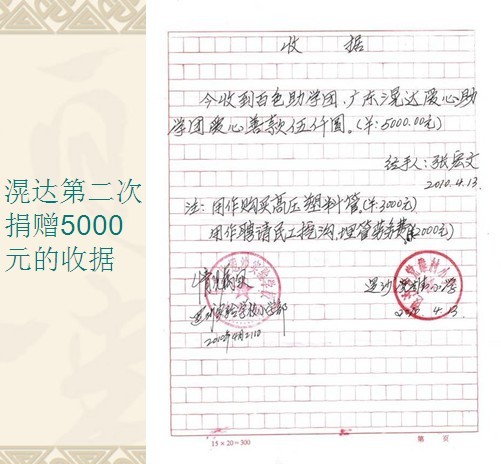 滉达第二次
捐赠5000
元的收据
收 据
今收到百色助学团、广东滉达爱心助
学团爱心善款伍仟圆。(羊:5000.00元)
经手人:张宏文
2010.4.13.
注:用作购买高压塑料管。(羊:3000元)
用作聘请民工挖沟、埋管劳务费(2000元)
情况属实
逻沙实验学校小学部
逻沙
小学
4.13
15×20=300
第 页